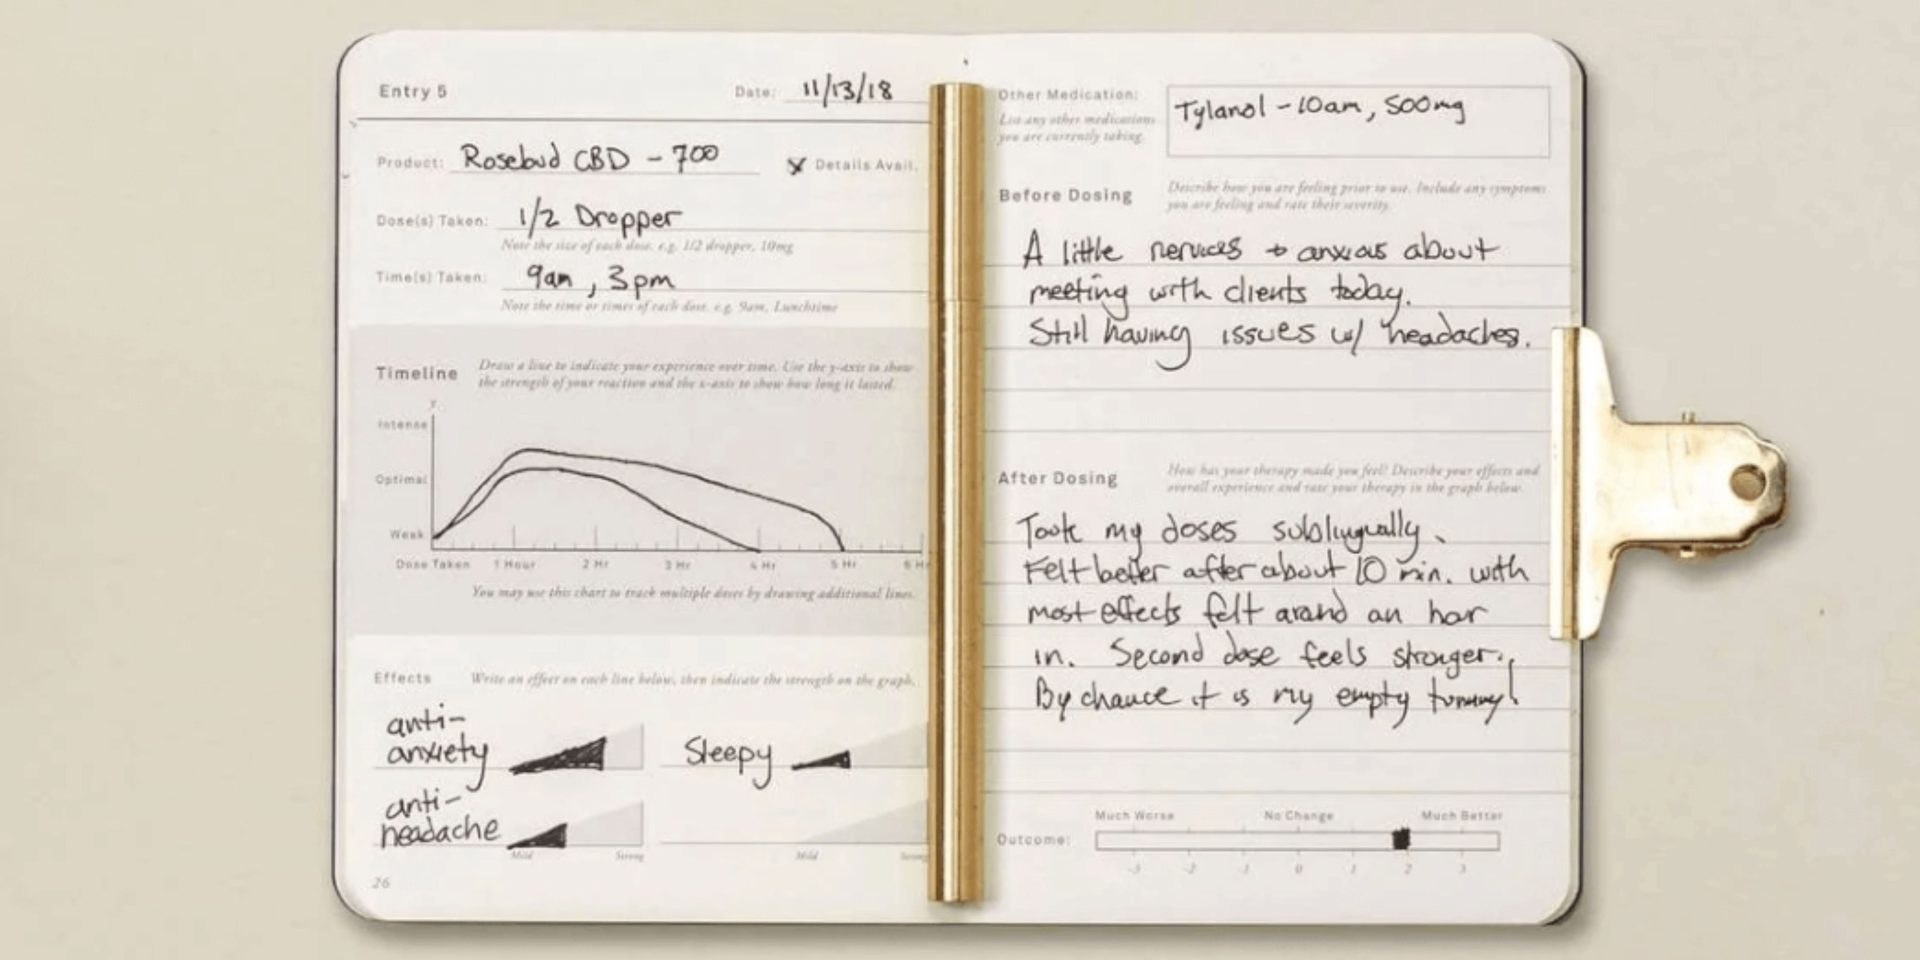 Entry 5
Date: 11/13/18
Product: Rosebud CBD - 700
Details Avail.
Dose(s) Taken: 1/2 Dropper
Note the size of each dose. e.g. 1/2 dropper, 10mg
Time(s) Taken: 9am, 3pm
Note the time or times of each dose. e.g. 9am, Lunchtime
Timeline
Draw a line to indicate your experience over time. Use the y-axis to show
the strength of your reaction and the x-axis to show how long it lasted.
y
Intense
Optimal
Weak
Dose Taken 1 Hour 2 Hr 3 Hr 4 Hr 5 Hr 6 H
You may use this chart to track multiple doses by drawing additional lines.
Effects
Write an effect on each line below, then indicate the strength on the graph.
anti-
anxiety
Sleepy
anti-
headache
Mild Strong
Mild Strong
26
Other Medication:
List any other medications
you are currently taking.
Tylanol - 10am, 500mg
Before Dosing
Describe how you are feeling prior to use. Include any symptoms
you are feeling and rate their severity.
A little nervous + anxious about
meeting with clients today.
Still having issues w/ headaches.
After Dosing
How has your therapy made you feel? Describe your effects and
overall experience and rate your therapy in the graph below.
Took my doses sublingually.
Felt better after about 10 min. with
most effects felt around an hour
in. Second dose feels stronger.
By chance it is my empty tummy!
Much Worse No Change Much Better
Outcome:
-3 -2 -1 0 1 2 3